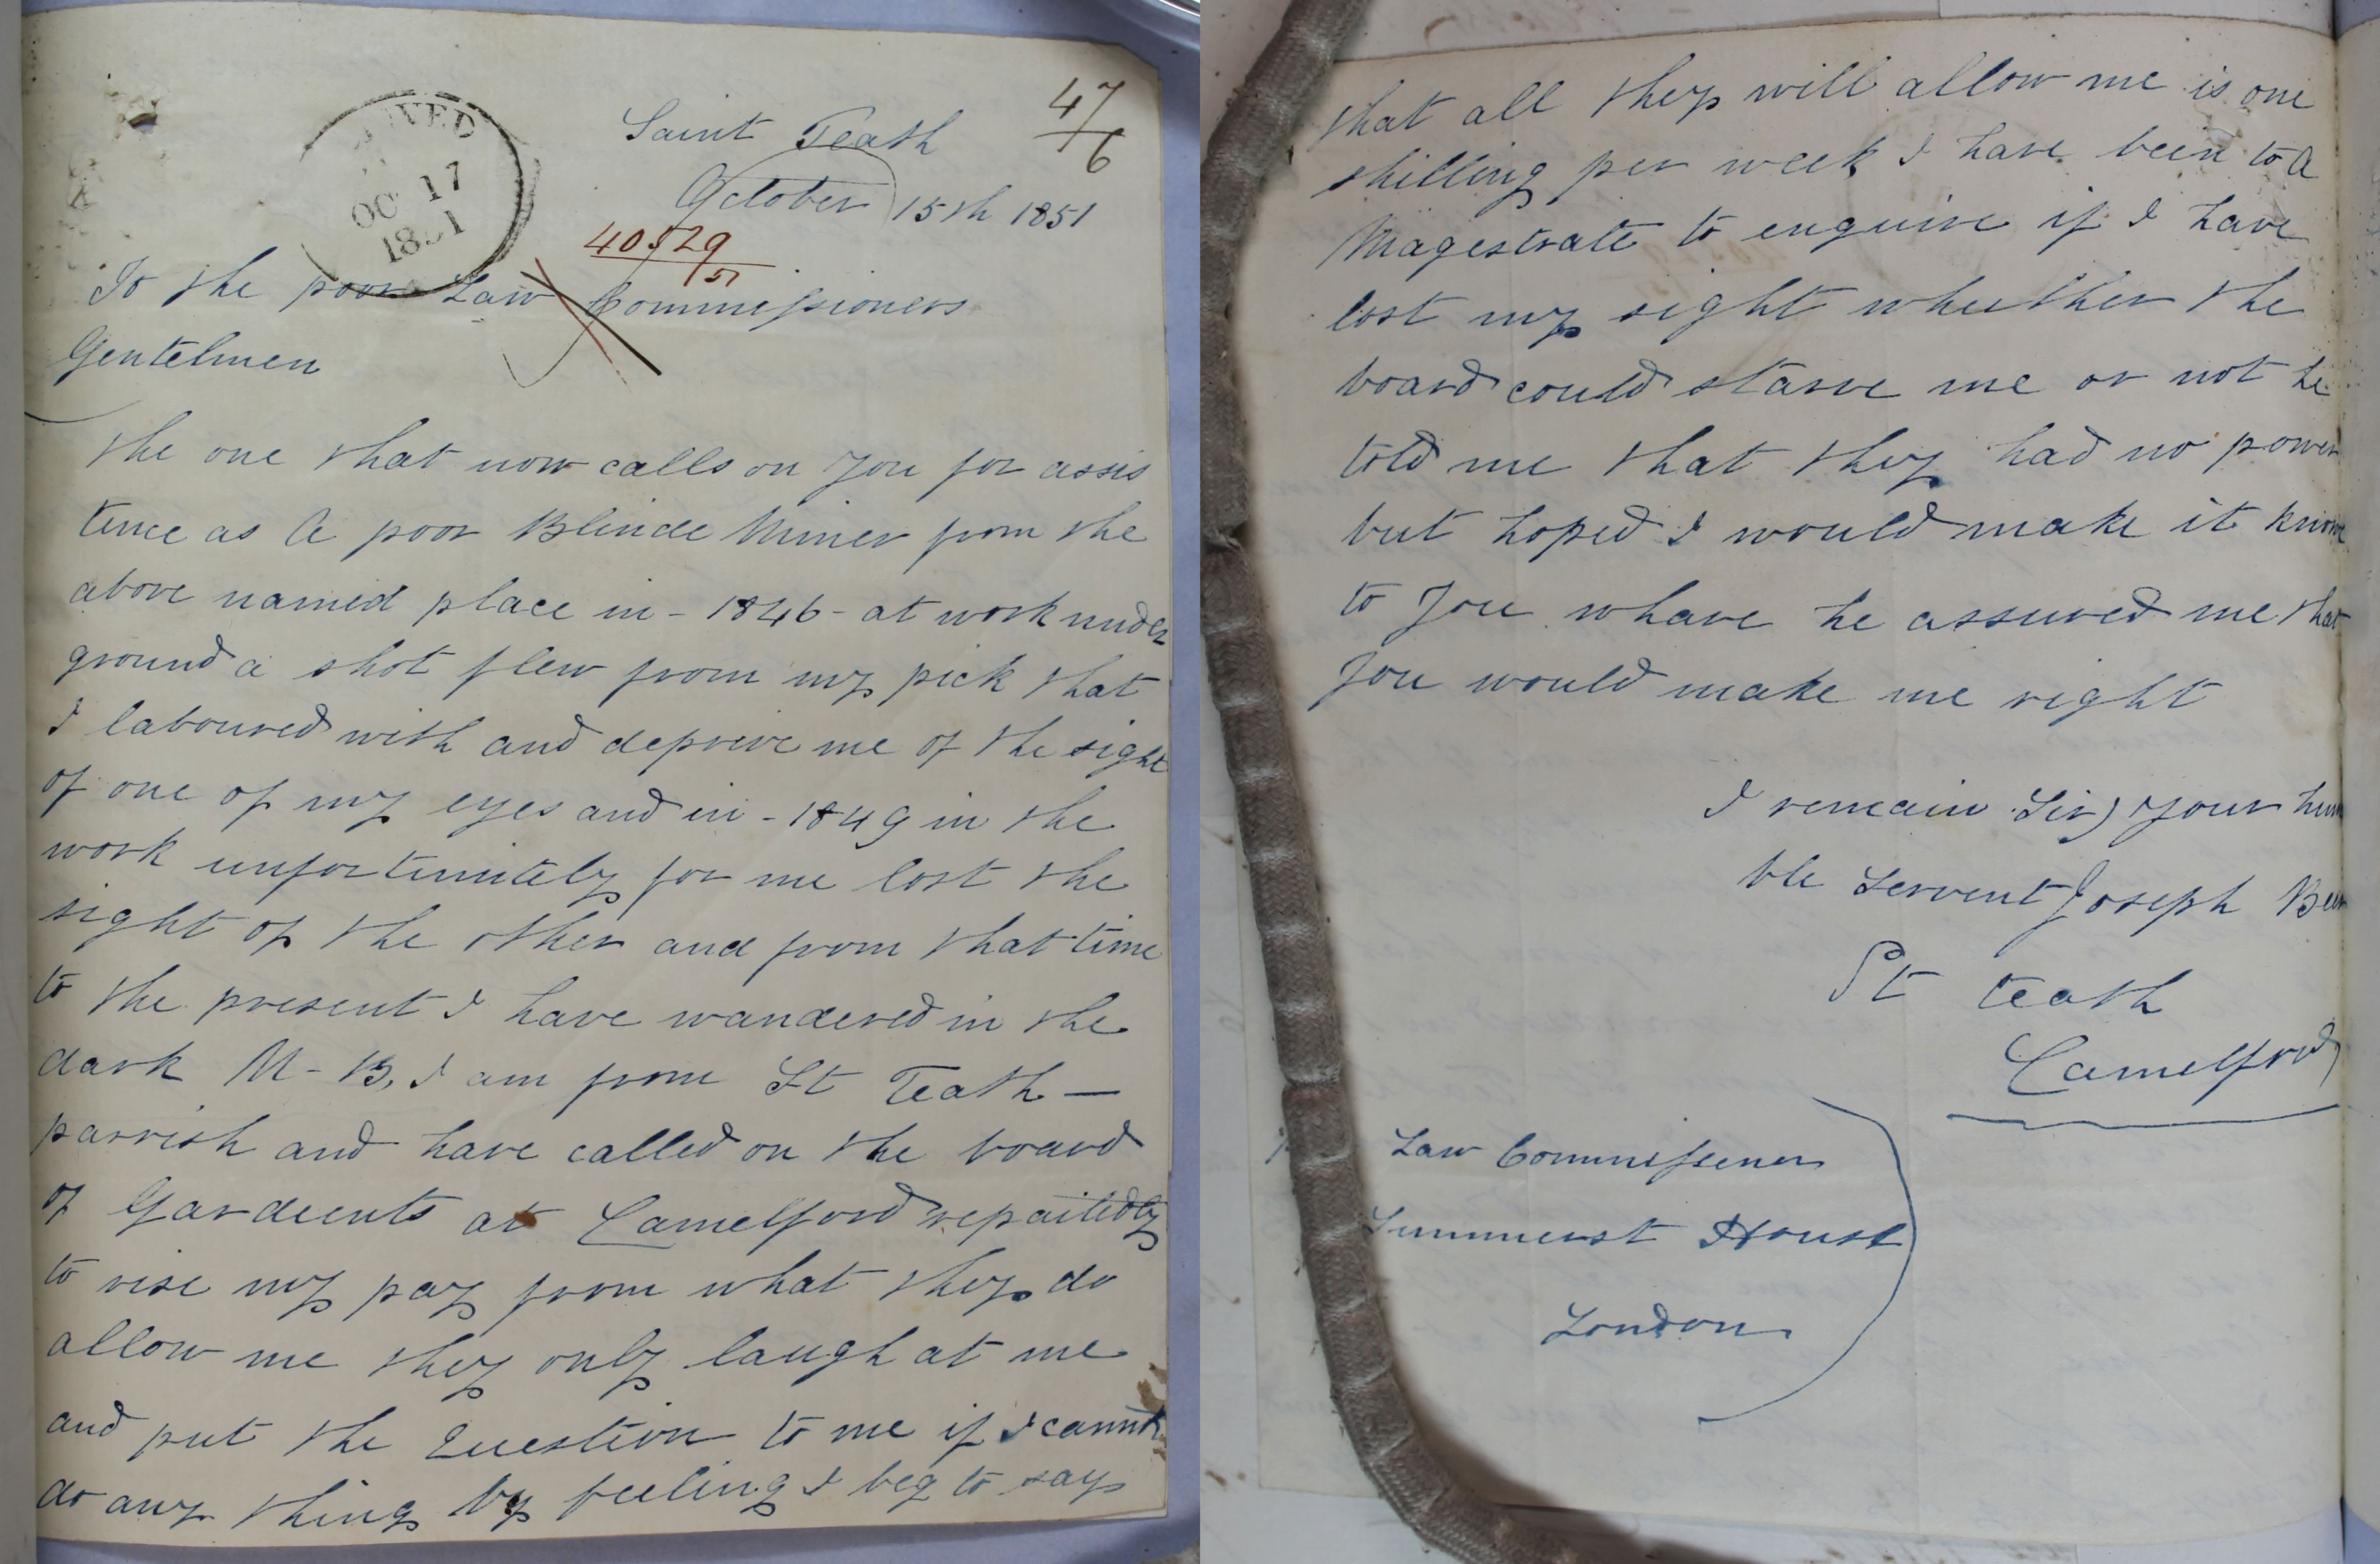 47
6
Saint Teath
October 15th 1851
OC 17
40529
51
To the poor Law Commissioners
Gentelmen
the one that now calls on you for assis
tince as A poor Blinde Miner from the
above named place in - 1846 - at work under
ground a shot flew from my pick that
I laboured with and deprive me of the sight
of one of my eyes and in - 1849 in the
work unfortinitely for me lost the
sight of the other and from that time
to the present I have wandered in the
dark N - B, I am from St Teath —
parrish and have called on the board
of Gardeents at Camelford repaitedly
to rise my pay from what they do
allow me they only laugh at me
and put the Question to me if I cannot
do any thing by feeling I beg to say
that all they will allow me is one
shilling per week I have been to A
Magestrate to enquire if I have
lost my sight wheether the
board could starve me or not he
told me that they had no power
but hoped I would make it known
to you whare he assured me that
you would make me right
I remain Sir) your hum
ble Servent Joseph
St teath
Camelford
Law Commissener
Summerst House
London